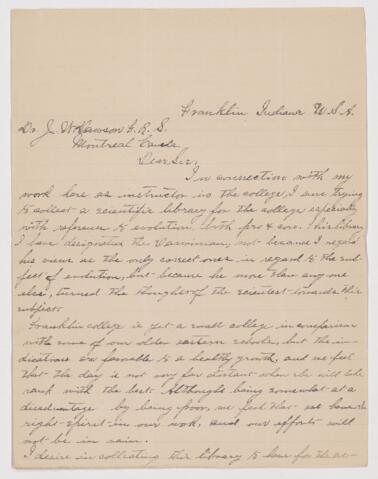 Franklin Indiana U.S.A.
Dr. J. W. Dawson F.R.S.
Montreal
Dear Sir;
In connection with my
work here as instructor in the college, I am trying
to collect a scientific library for the college especially
with reference to evolution, both pro & con. This library
I have designated the Darwinian, not because I regard
his views as the only correct ones in regard to the sub-
ject of evolution, but because he more than any one
else, turned the thoughts of the scientist towards this
subject.
Franklin college is yet a small college in comparison
with some of our older eastern schools, but the in-
dications are favorable to a healthy growth, and we feel
that the day is not very far distant when she will take
rank with the best. Although being somewhat at a
disadvantage by being poor, we feel that we have the
right spirit in our work, and our efforts will
not be in vain.
I desire in collecting this library to have for the